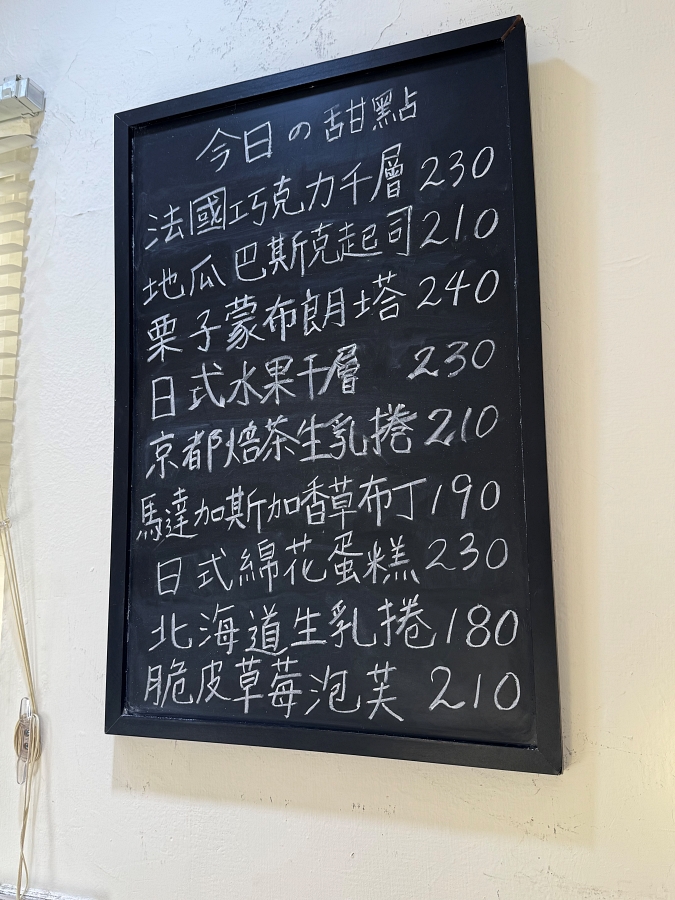 今日の甜點
法國巧克力千層 230
地瓜巴斯克起司 210
栗子蒙布朗塔 240
日式水果千層 230
京都焙茶生乳捲 210
馬達加斯加香草布丁 190
日式綿花蛋糕 230
北海道生乳捲 180
脆皮草莓泡芙 210